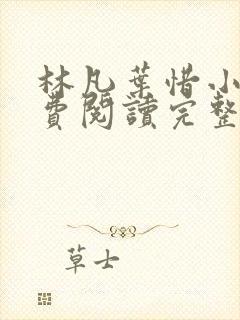 林凡葉惜小
費閱讀完整
草士